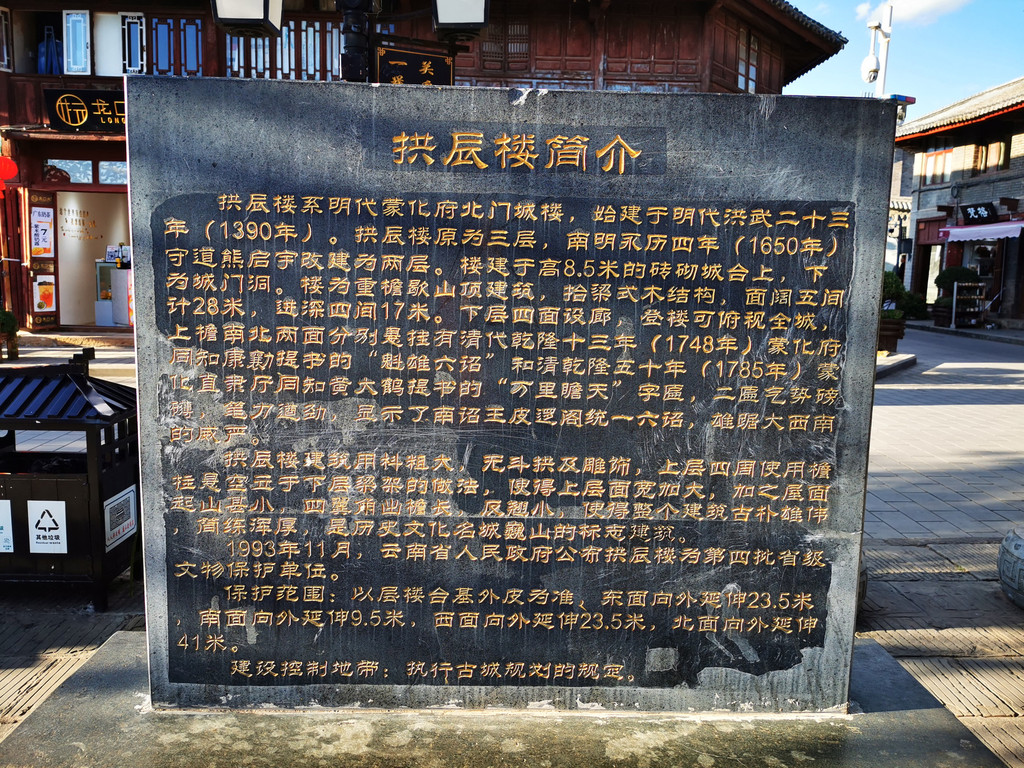 拱辰楼简介
拱辰楼系明代蒙化府北门城楼，始建于明代洪武二十三
年（1390年）。拱辰楼原为三层，南明永历四年（1650年）
守道熊启宇改建为两层。楼建于高8.5米的砖砌城台上，下
为城门洞。楼为重檐歇山顶建筑，抬梁式木结构，面阔五间
计28米，进深四间17米。下层四面设廊，登楼可俯视全城，
上檐南北两面分别悬挂有清代乾隆十三年（1748年）蒙化府
同知康勷提书的“魁雄六诏”和清乾隆五十年（1785年）蒙
化直隶厅同知黄大鹤提书的“万里瞻天”字匾，二匾气势磅
礴，笔力遒劲，显示了南诏王皮逻阁统一六诏，雄踞大西南
的威严。
拱辰楼建筑用料粗大，无斗拱及雕饰，上层四周使用檐
柱悬空立于下层梁架的做法，使得上层面宽加大，加之屋面
起山甚小，四翼角出檐长，反翘小，使得整个建筑古朴雄伟
，简练浑厚，是历史文化名城巍山的标志建筑。
1993年11月，云南省人民政府公布拱辰楼为第四批省级
文物保护单位。
保护范围：以层楼台基外皮为准、东面向外延伸23.5米
，南面向外延伸9.5米，西面向外延伸23.5米，北面向外延伸
41米。
建设控制地带：执行古城规划的规定。
其他垃圾